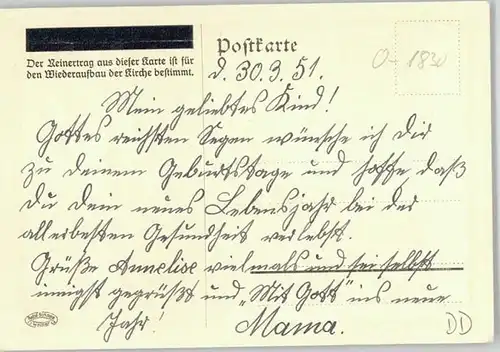 Der Reinertrag aus dieser Karte ist für
den Wiederaufbau der Kirche bestimmt.
Postkarte
O-1830
d. 30.3.51.
Mein geliebtes Kind!
Gottes reichsten Segen wünsche ich Dir
zu deinem Geburtstage und hoffe daß
Du Dein neues Lebensjahr bei der
allerbesten Gesundheit verlebst.
Grüße Annelise vielmals und sei selbst
innigst gegrüßt und "Mit Gott" ins neue
Jahr!
Mama.
DD